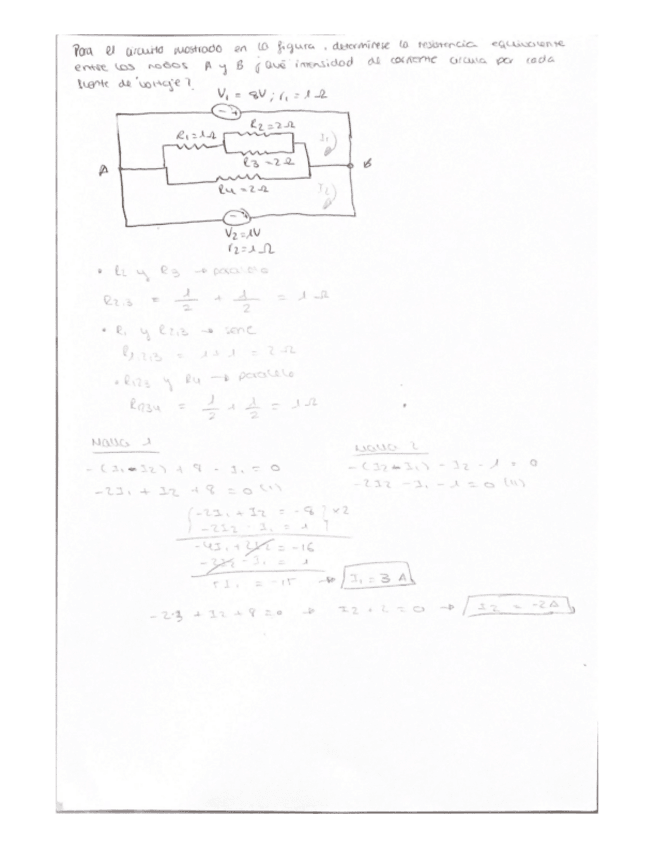 Para el circuito mostrado en la figura, determínese la resistencia equivalente
entre los nodos A y B ¿Qué intensidad de corriente circula por cada
fuente de voltaje?
V1 = 8V ; r1 = 1 Ω
R2 = 2Ω
R1 = 1Ω
I1
A
R3 = 2Ω
B
R4 = 2Ω
I2
V2 = 1V
r2 = 1 Ω
• R2 y R3 → paralelo
R2,3 = 1/2 + 1/2 = 1 Ω
• R1 y R2,3 → serie
R1,2,3 = 1 + 1 = 2 Ω
• R123 y R4 → paralelo
R1234 = 1/2 + 1/2 = 1 Ω
Malla 1
Malla 2
-(I1-I2) + 8 - I1 = 0
-(I2-I1) - I2 - 1 = 0
-2I1 + I2 + 8 = 0 (I)
-2I2 - I1 - 1 = 0 (II)
-2I1 + I2 = -8 } x2
-2I2 - I1 = 1
-4I1 + 2I2 = -16
-2I2 - I1 = 1
-5I1 = -15 → I1 = 3 A
-2·3 + I2 + 8 = 0 → I2 + 2 = 0 → I2 = -2A